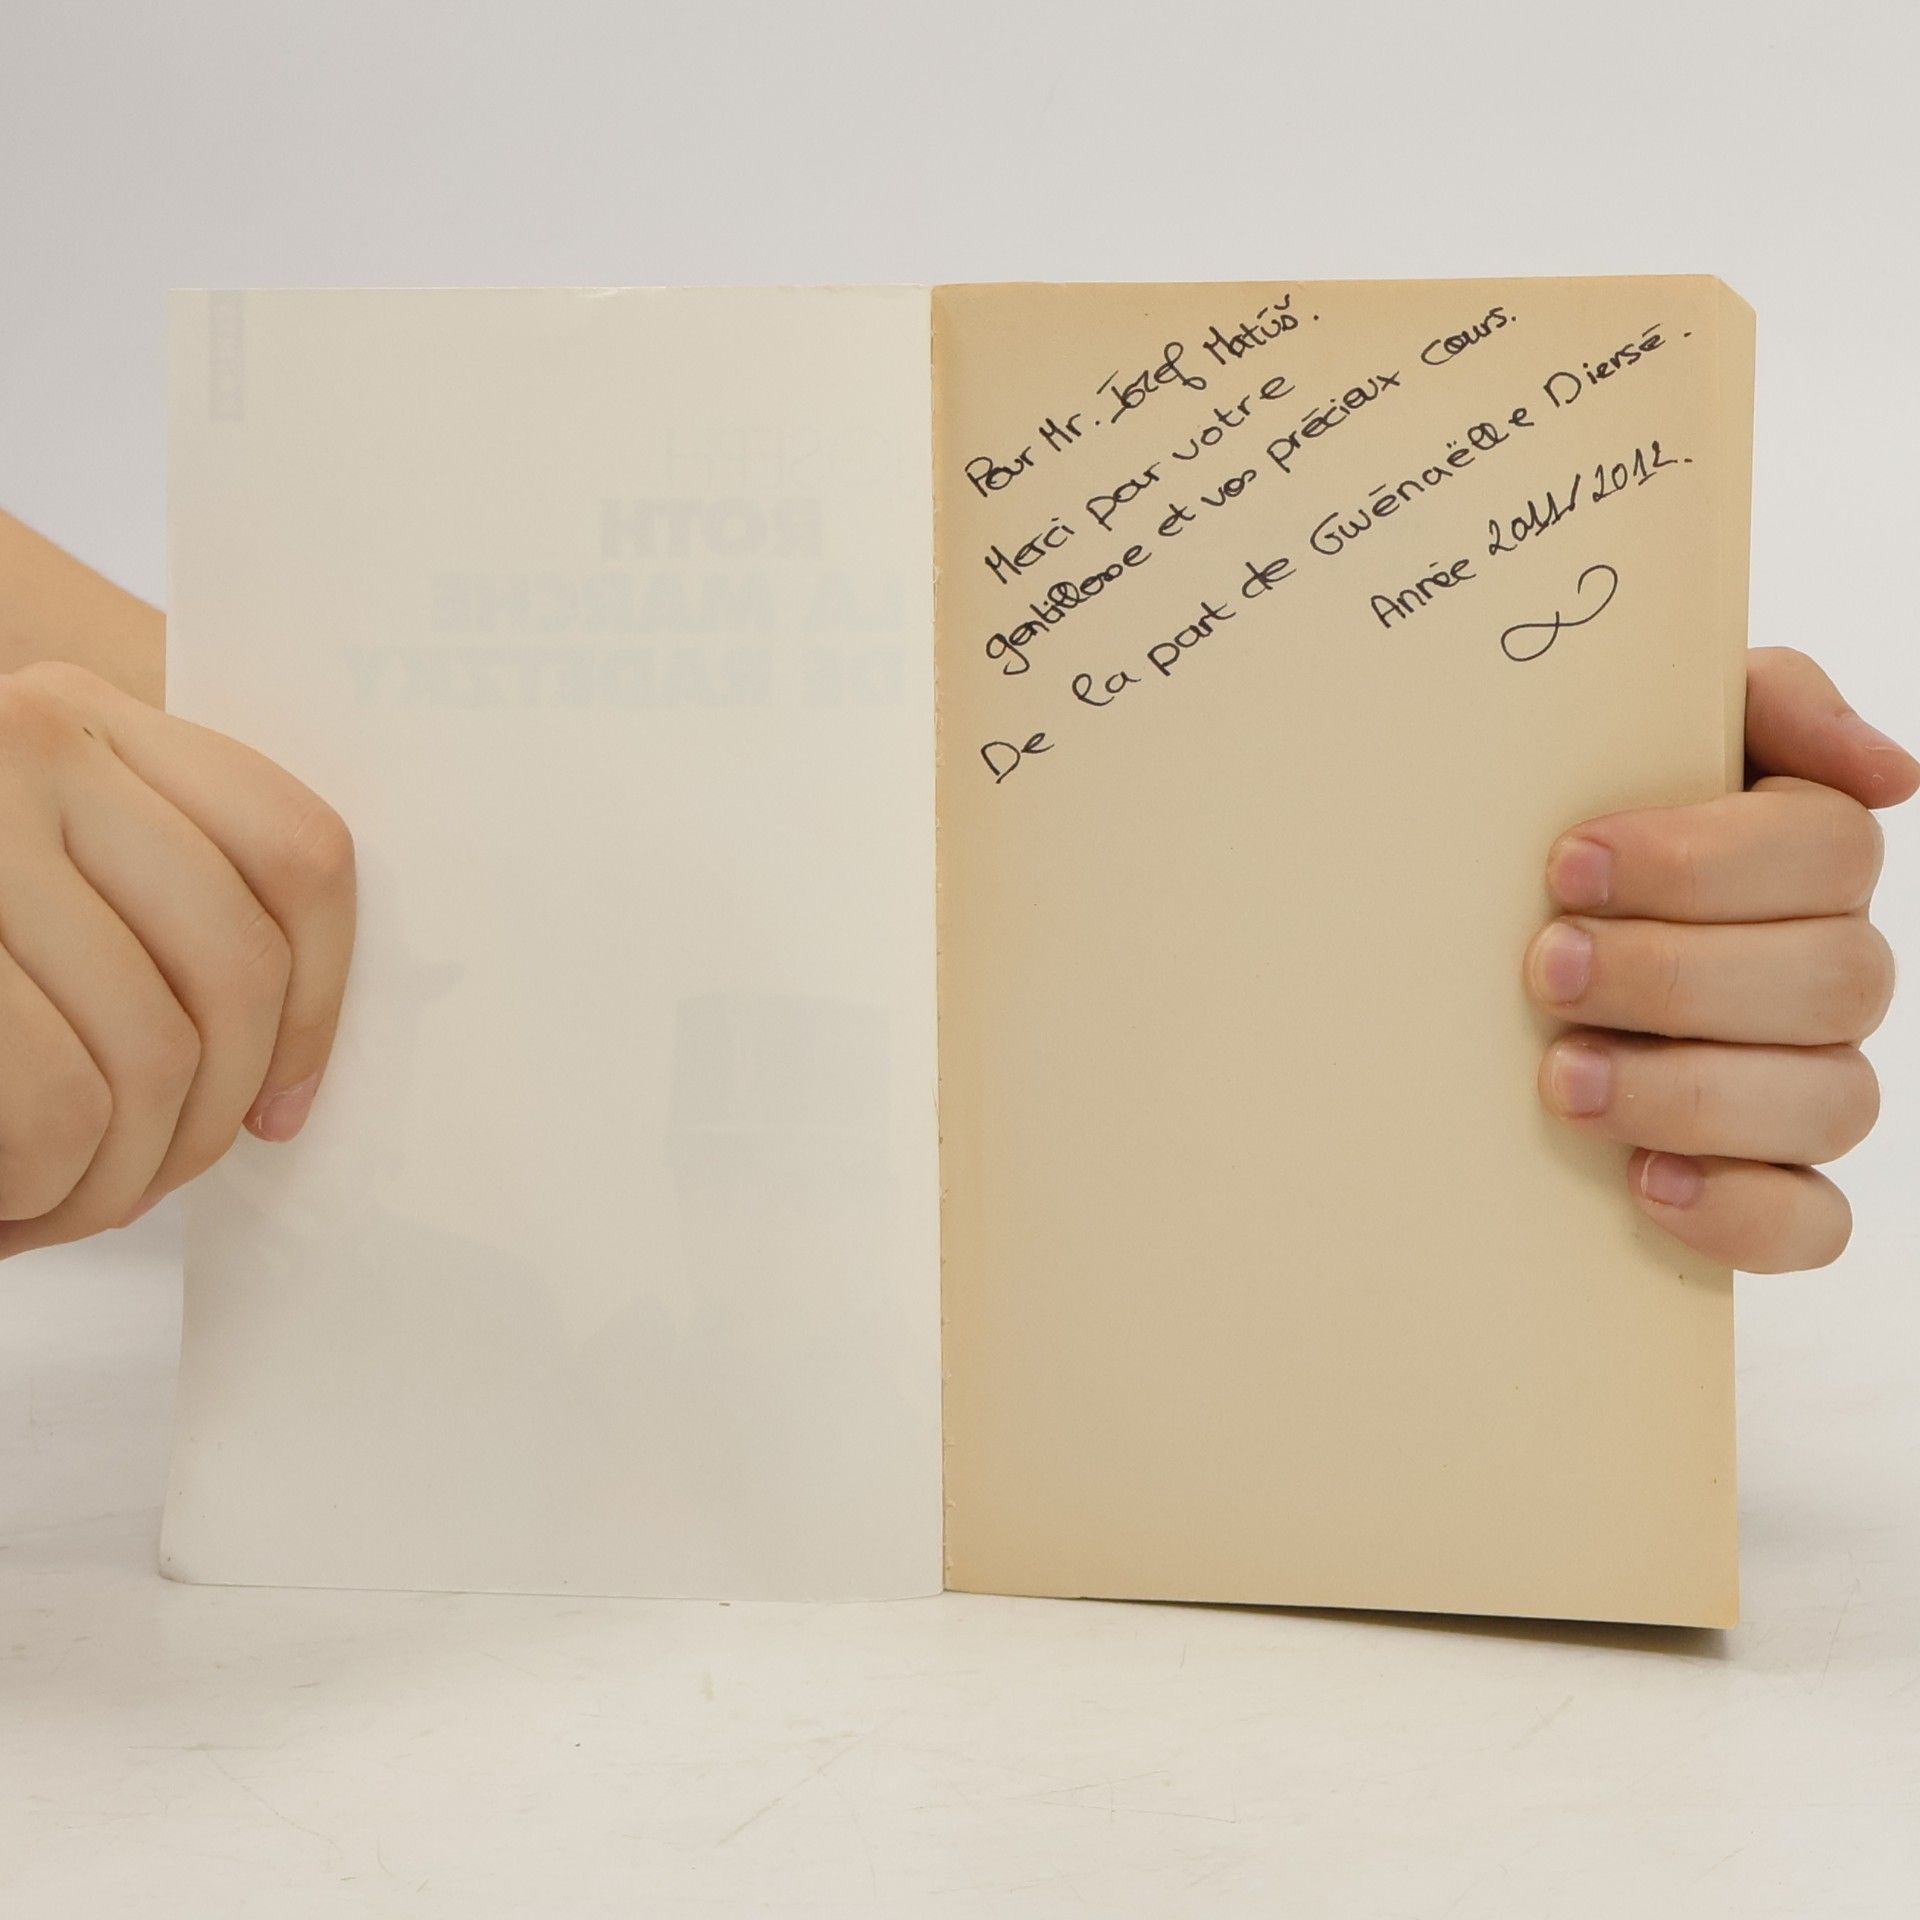 ROTH
LA MARCHE
DE RADETZKY
Pour Mr. Jozef Matúš.
Merci pour votre
gentillesse et vos précieux cours.
De la part de Gwénaëlle Diersé.
Année 2011/2012.